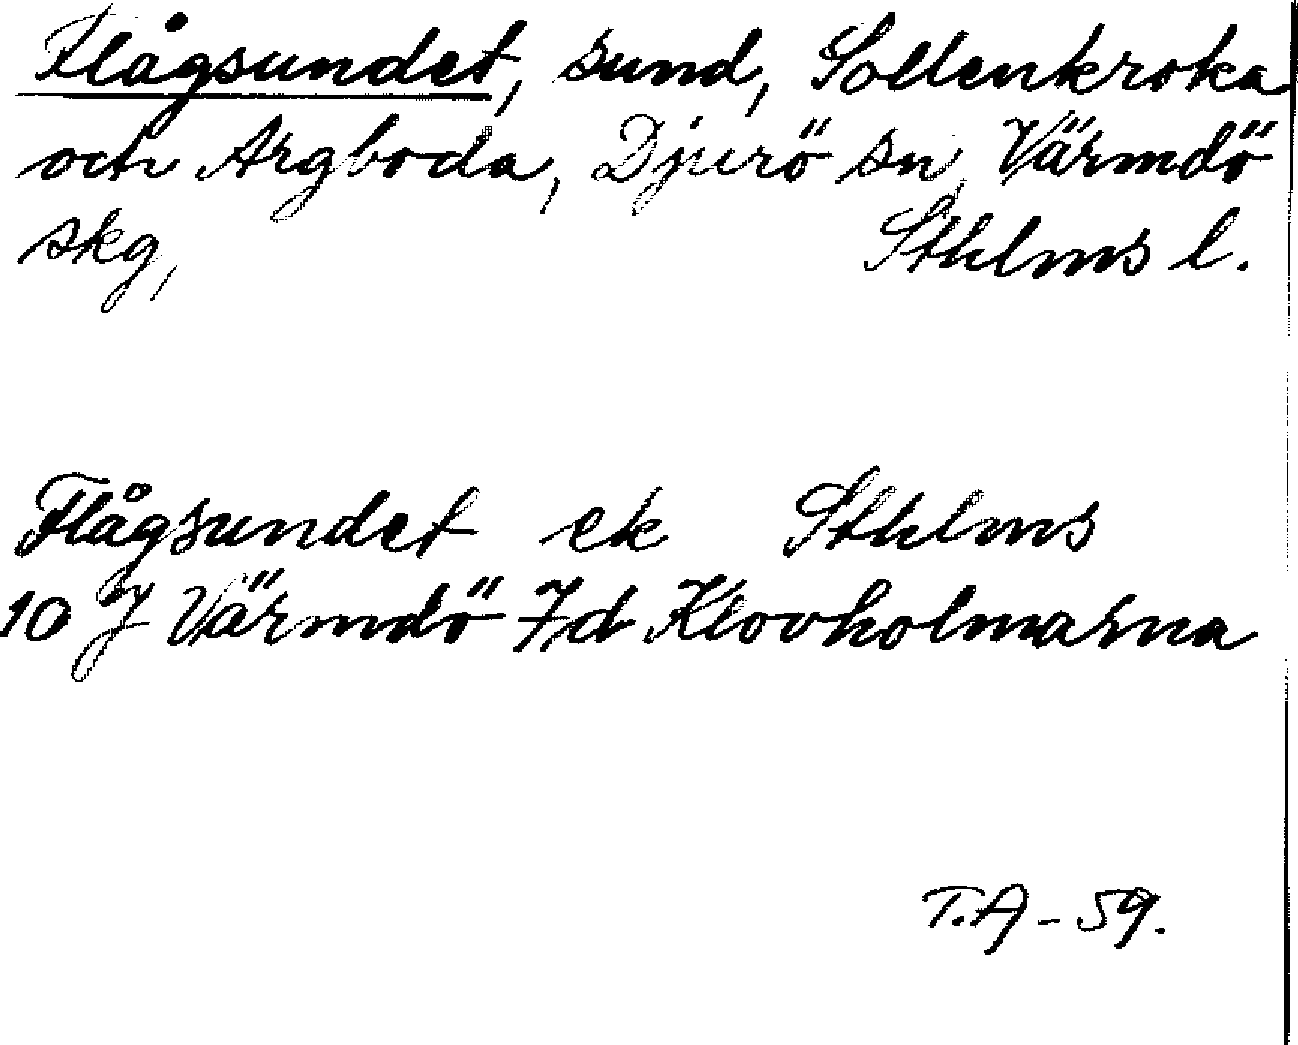 Flågsundet, sund, Sollenkroka
och Argboda, Djurö sn, Värmdö
skg, Sthlms l.
Flågsundet ek Sthlms
10 J Värmdö 7d Klovholmarna
T.A - 59.